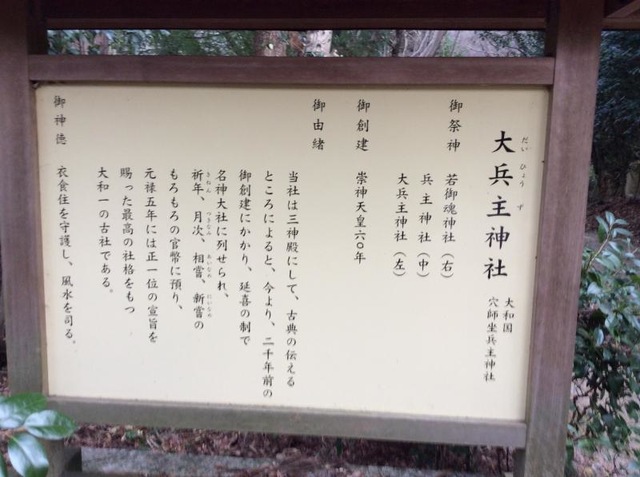 大兵主神社
だいひょうず
大和国
穴師坐兵主神社
御祭神 若御魂神社（右）
兵主神社（中）
大兵主神社（左）
御創建 崇神天皇六〇年
御由緒
当社は三神殿にして、古典の伝える
ところによると、今より、二千年前の
御創建にかかり、延喜の制で
名神大社に列せられ、
祈年、月次、相嘗、新嘗の
きねん つきなみ あいなめ にいなめ
もろもろの官幣に預り、
元禄五年には正一位の宣旨を
賜った最高の社格をもつ
大和一の古社である。
御神徳 衣食住を守護し、風水を司る。